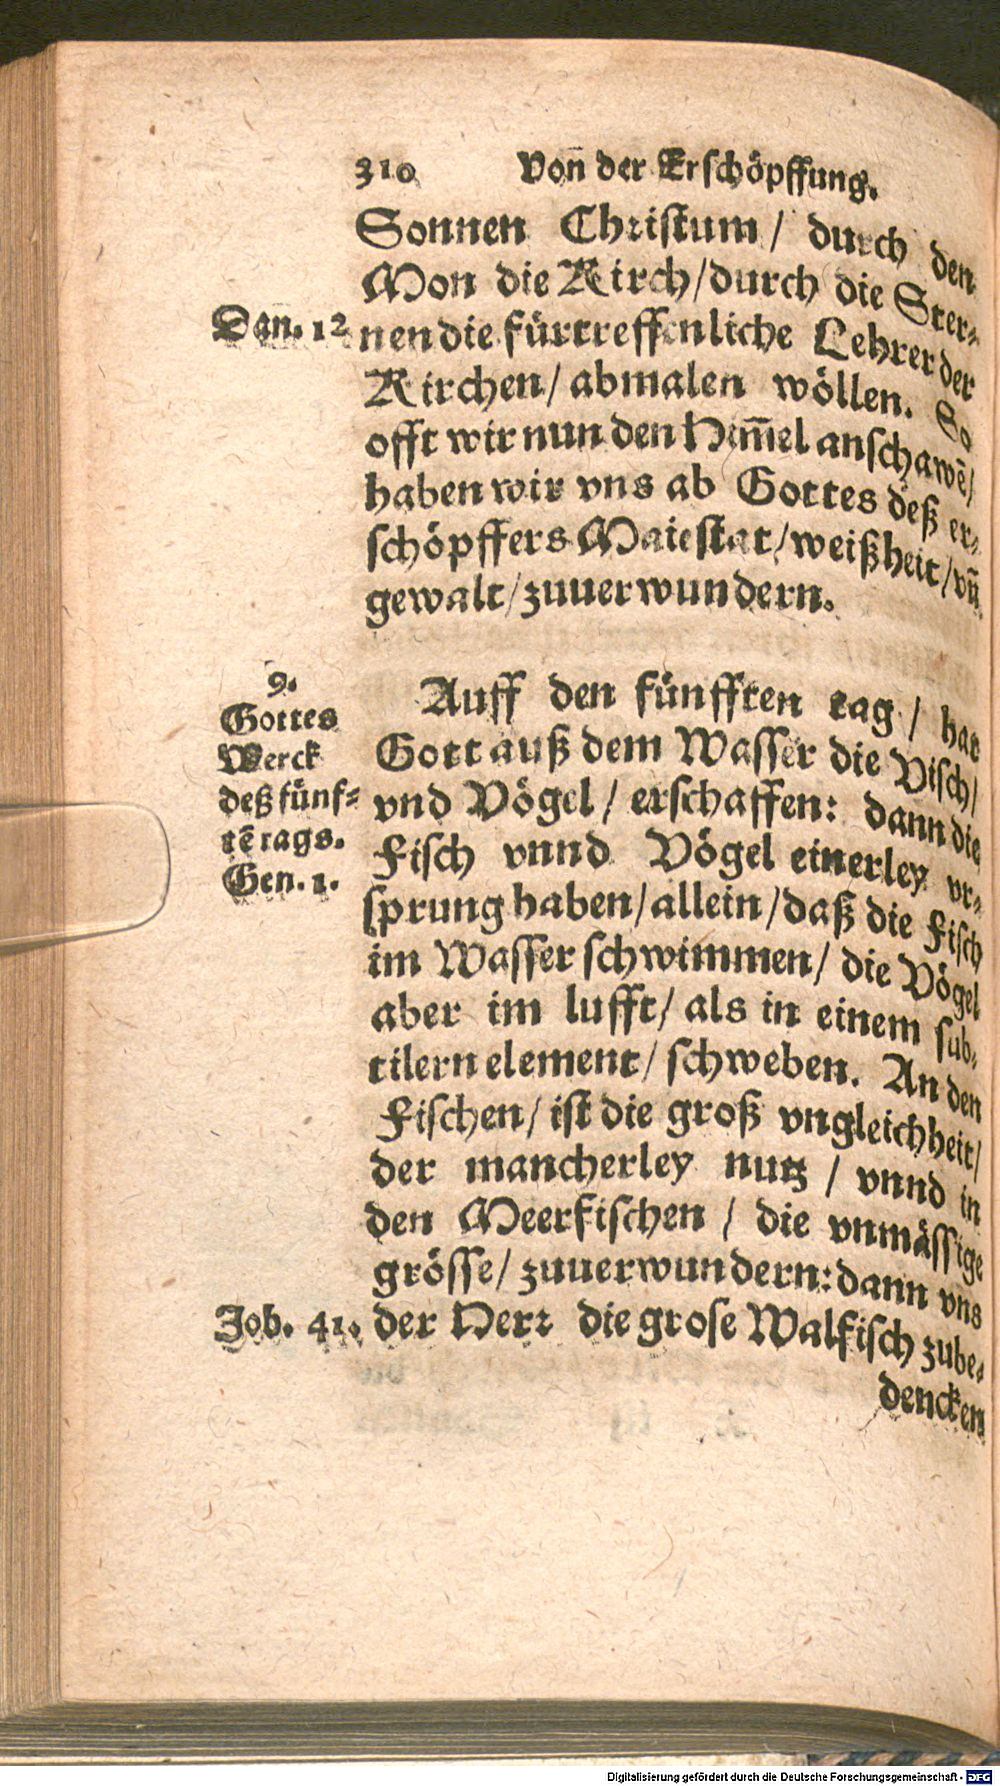 310 Von̄ der Erschöpffung.
Sonnen Christum / durch den
Mon die Kirch / durch die Ster⸗
Dan. 12
nen die fürtreffenliche Lehrer der
Kirchen / abmalen wöllen. So
offt wir nun den Him̄el anschawē /
haben wir vns ab Gottes deß er⸗
schöpffers Maiestat / weißheit / vn̄
gewalt / zuuerwundern.
9.
Gottes
Werck
deß fünf⸗
tē tags.
Gen. 1.
Auff den fünfften tag / hat
Gott auß dem Wasser die Visch /
vnd Vögel / erschaffen: dann die
Fisch vnnd Vögel einerley vr⸗
sprung haben / allein / daß die Fisch
im Wasser schwimmen / die Vögel
aber im lufft / als in einem sub⸗
tilern element / schweben. An den
Fischen / ist die groß vngleichheit /
der mancherley nutz / vnnd in
den Meerfischen / die vnmässige
grösse / zuuerwundern: dann vns
Job. 41.
der Herr die grose Walfisch zube⸗
dencken
Digitalisierung gefördert durch die Deutsche Forschungsgemeinschaft - DFG